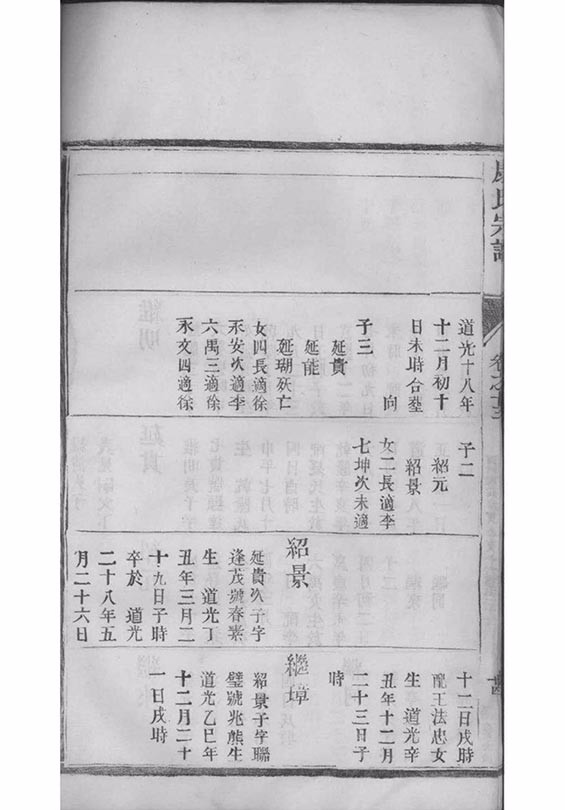 氏宗譜
卷之十三
十四
道光十八年
十二月初十
日未時合塟
向
子三
延貴
延能
延瑚殀亡
女四長適徐
永安次適李
六禺三適徐
永文四適徐
子二
紹元
紹景
女二長適李
七坤次未適
紹景
延貴次子字
逢戊號春素
生 道光丁
丑年三月二
十九日子時
卒於 道光
二十八年五
月二十六日
十二日戌時
配王法忠女
生 道光辛
丑年十二月
二十三日子
時
繼璋
紹景子字聯
璧號兆熊生
道光乙巳年
十二月二十
一日戌時